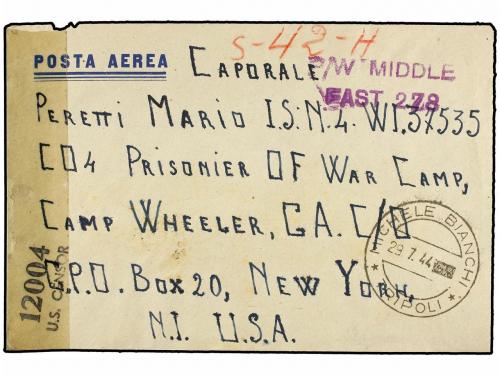 S-42-H
POSTA AEREA CAPORALE
P/W MIDDLE
EAST 278
PERETTI MARIO I.S.N.4. WI.37535
CO4 PRISONIER OF WAR CAMP,
CAMP WHEELER, G.A. C/O
J.P.O. BOX 20, NEW YORK,
N.I. U.S.A.
MICHELE BIANCHI
29.7.44
TRIPOLI
12004
U.S. CENSOR